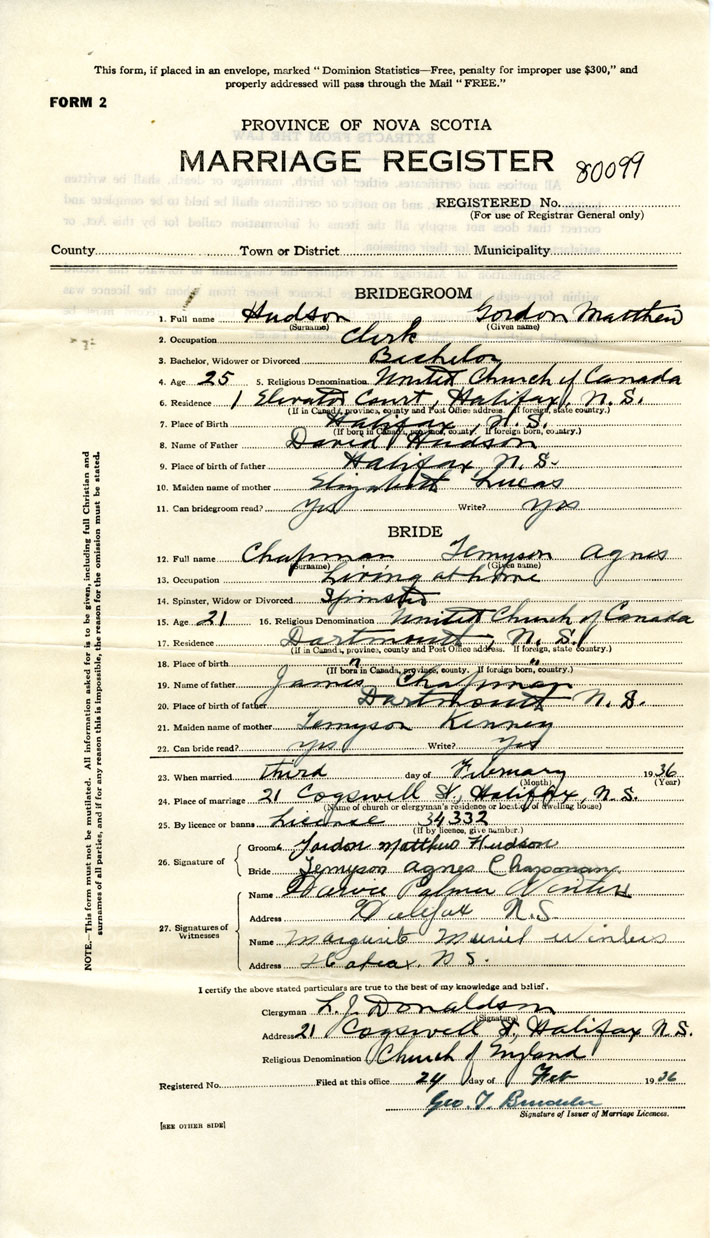 This form, if placed in an envelope, marked "Dominion Statistics—Free, penalty for improper use $300," and
properly addressed will pass through the Mail "FREE."
FORM 2
PROVINCE OF NOVA SCOTIA
MARRIAGE REGISTER 80099
REGISTERED No.
(For use of Registrar General only)
County Town or District Municipality
BRIDEGROOM
1. Full name Hudson Gordon Matthew
(Surname) (Given name)
2. Occupation Clerk
3. Bachelor, Widower or Divorced Bachelor
4. Age 25 5. Religious Denomination United Church of Canada
6. Residence 1 Elevator Court, Halifax, N.S.
(If in Canada, province, county and Post Office address. If foreign, state country.)
7. Place of Birth Halifax, N.S.
(If born in Canada, province, county. If foreign born, country.)
8. Name of Father David Hudson
9. Place of birth of father Halifax, N.S.
10. Maiden name of mother Elizabeth Lucas
11. Can bridegroom read? Yes Write? Yes
BRIDE
12. Full name Chapman Temyson Agnes
(Surname) (Given name)
13. Occupation Living at home
14. Spinster, Widow or Divorced Spinster
15. Age 21 16. Religious Denomination United Church of Canada
17. Residence Dartmouth, N.S.
(If in Canada, province, county and Post Office address. If foreign, state country.)
18. Place of birth " "
(If born in Canada, province, county. If foreign born, country.)
19. Name of father James Chapman
20. Place of birth of father Dartmouth N.S.
21. Maiden name of mother Temyson Kenney
22. Can bride read? Yes Write? Yes
23. When married third day of February 1936
(Month) (Year)
24. Place of marriage 21 Cogswell St, Halifax, N.S.
(Name of church or clergyman's residence or location of dwelling house)
25. By licence or banns License 34332
(If by licence, give number.)
26. Signature of
Groom Gordon Matthew Hudson
Bride Temyson Agnes Chapman
27. Signatures of Witnesses
Name Palmer Winters
Address Halifax N.S.
Name Marguerite Muriel Winters
Address Halifax N.S.
I certify the above stated particulars are true to the best of my knowledge and belief.
Clergyman L. J. Donaldson
(Signature)
Address 21 Cogswell St, Halifax N.S.
Religious Denomination Church of England
Registered No. Filed at this office 24 day of Feb 1936
Geo. T.
Signature of Issuer of Marriage Licences.
[SEE OTHER SIDE]
NOTE.—This form must not be mutilated. All information asked for is to be given, including full Christian and
surnames of all parties, and if for any reason this is impossible, the reason for the omission must be stated.